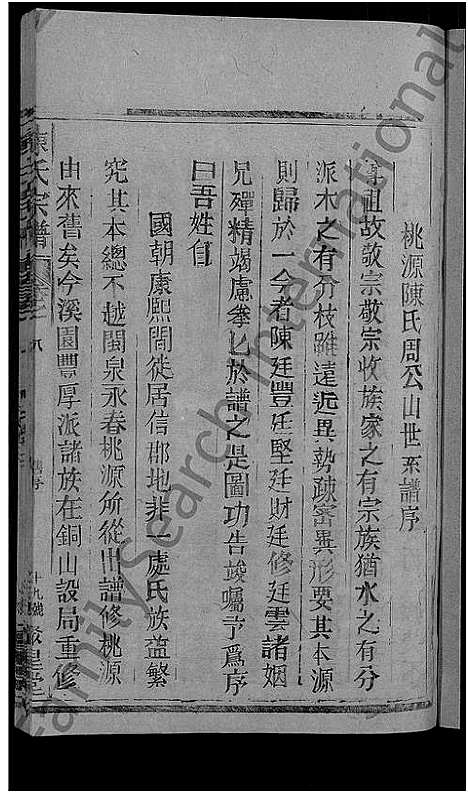 桃源陳氏周公山世系譜序
尊祖故敬宗敬宗收族家之有宗族猶水之有分
派木之有分枝雖遠近異勢疎密異形要其本源
則歸於一今者陳廷豐廷堅廷財廷修廷雲諸姻
兄殫精竭慮拳匕於譜之是圖功告竣囑予爲序
曰吾姓自
國朝康熙間徙居信郡地非一處氏族益繁
究其本總不越閩泉永春桃源所從出譜修桃源
由來舊矣今溪園豐厚派諸族在銅山設局重修
陳氏宗譜
FamilySearch International